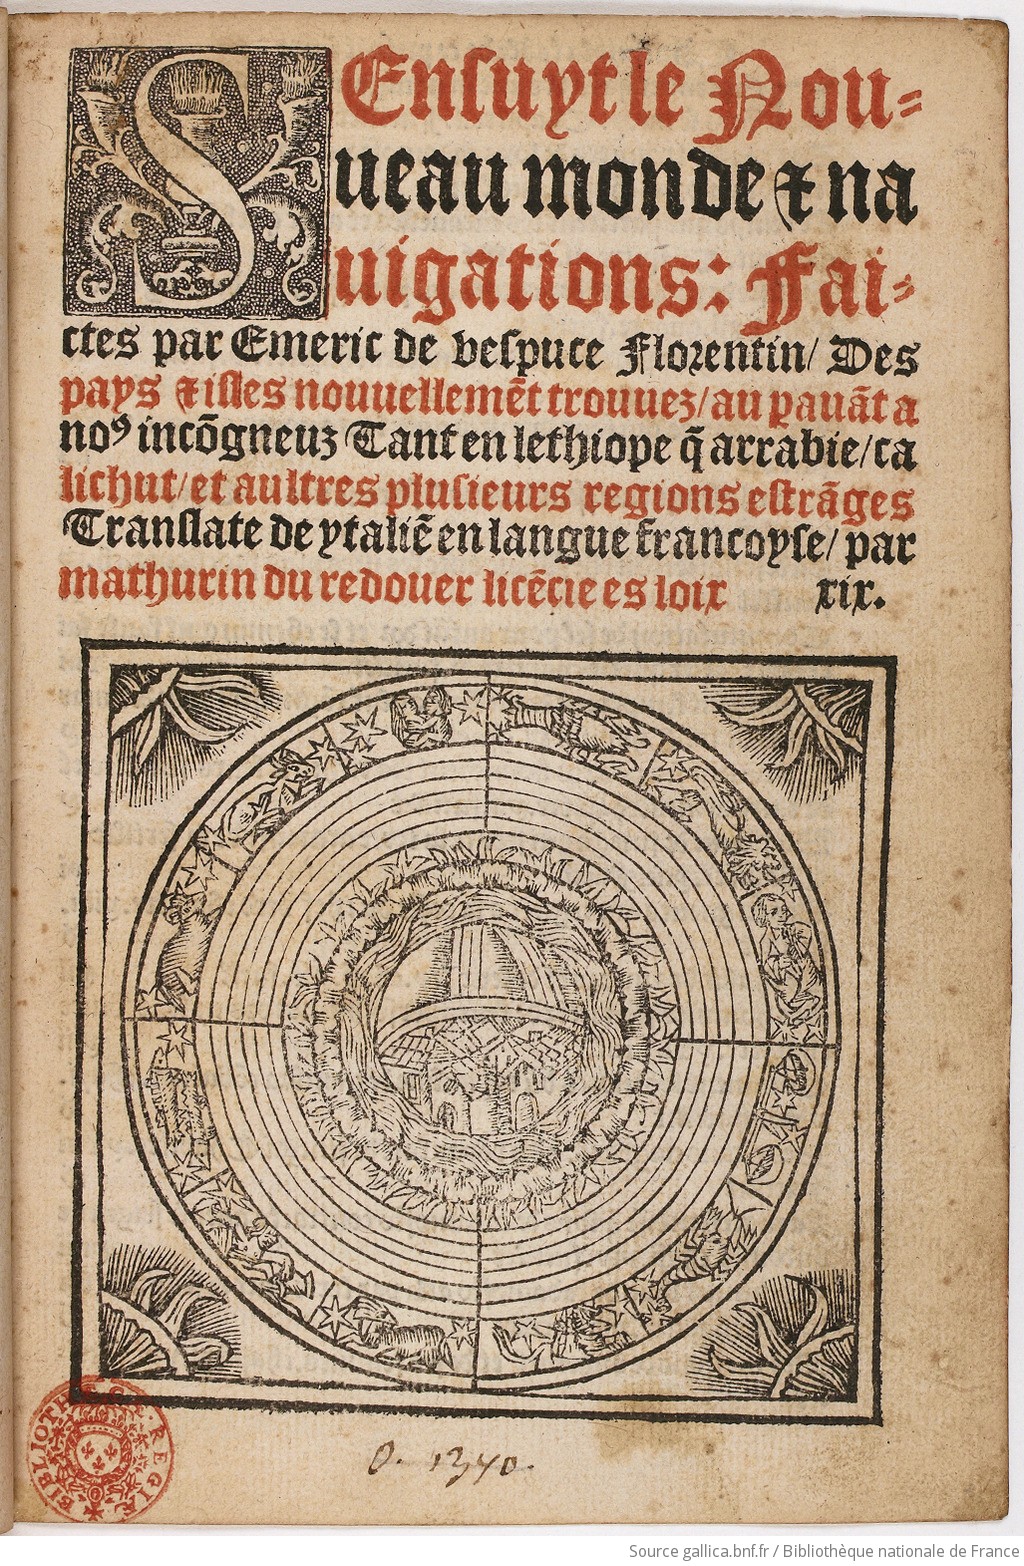 SEnsuyt le Nou=
ueau monde ⁊ na
uigations: Fai=
ctes par Emeric de vespuce Florentin/ Des
pays ⁊ isles nouuellemēt trouuez/ au pauāt a
noꝰ incōgneuz Tant en lethiope q̄ arrabie/ ca
lichut/ et aultres plusieurs regions estrāges
Translate de ytaliē en langue francoyse/ par
mathurin du redouer licēcie es loix xix.
BIBLIOTHECÆ REGIÆ
O. 1340.
Source gallica.bnf.fr / Bibliothèque nationale de France